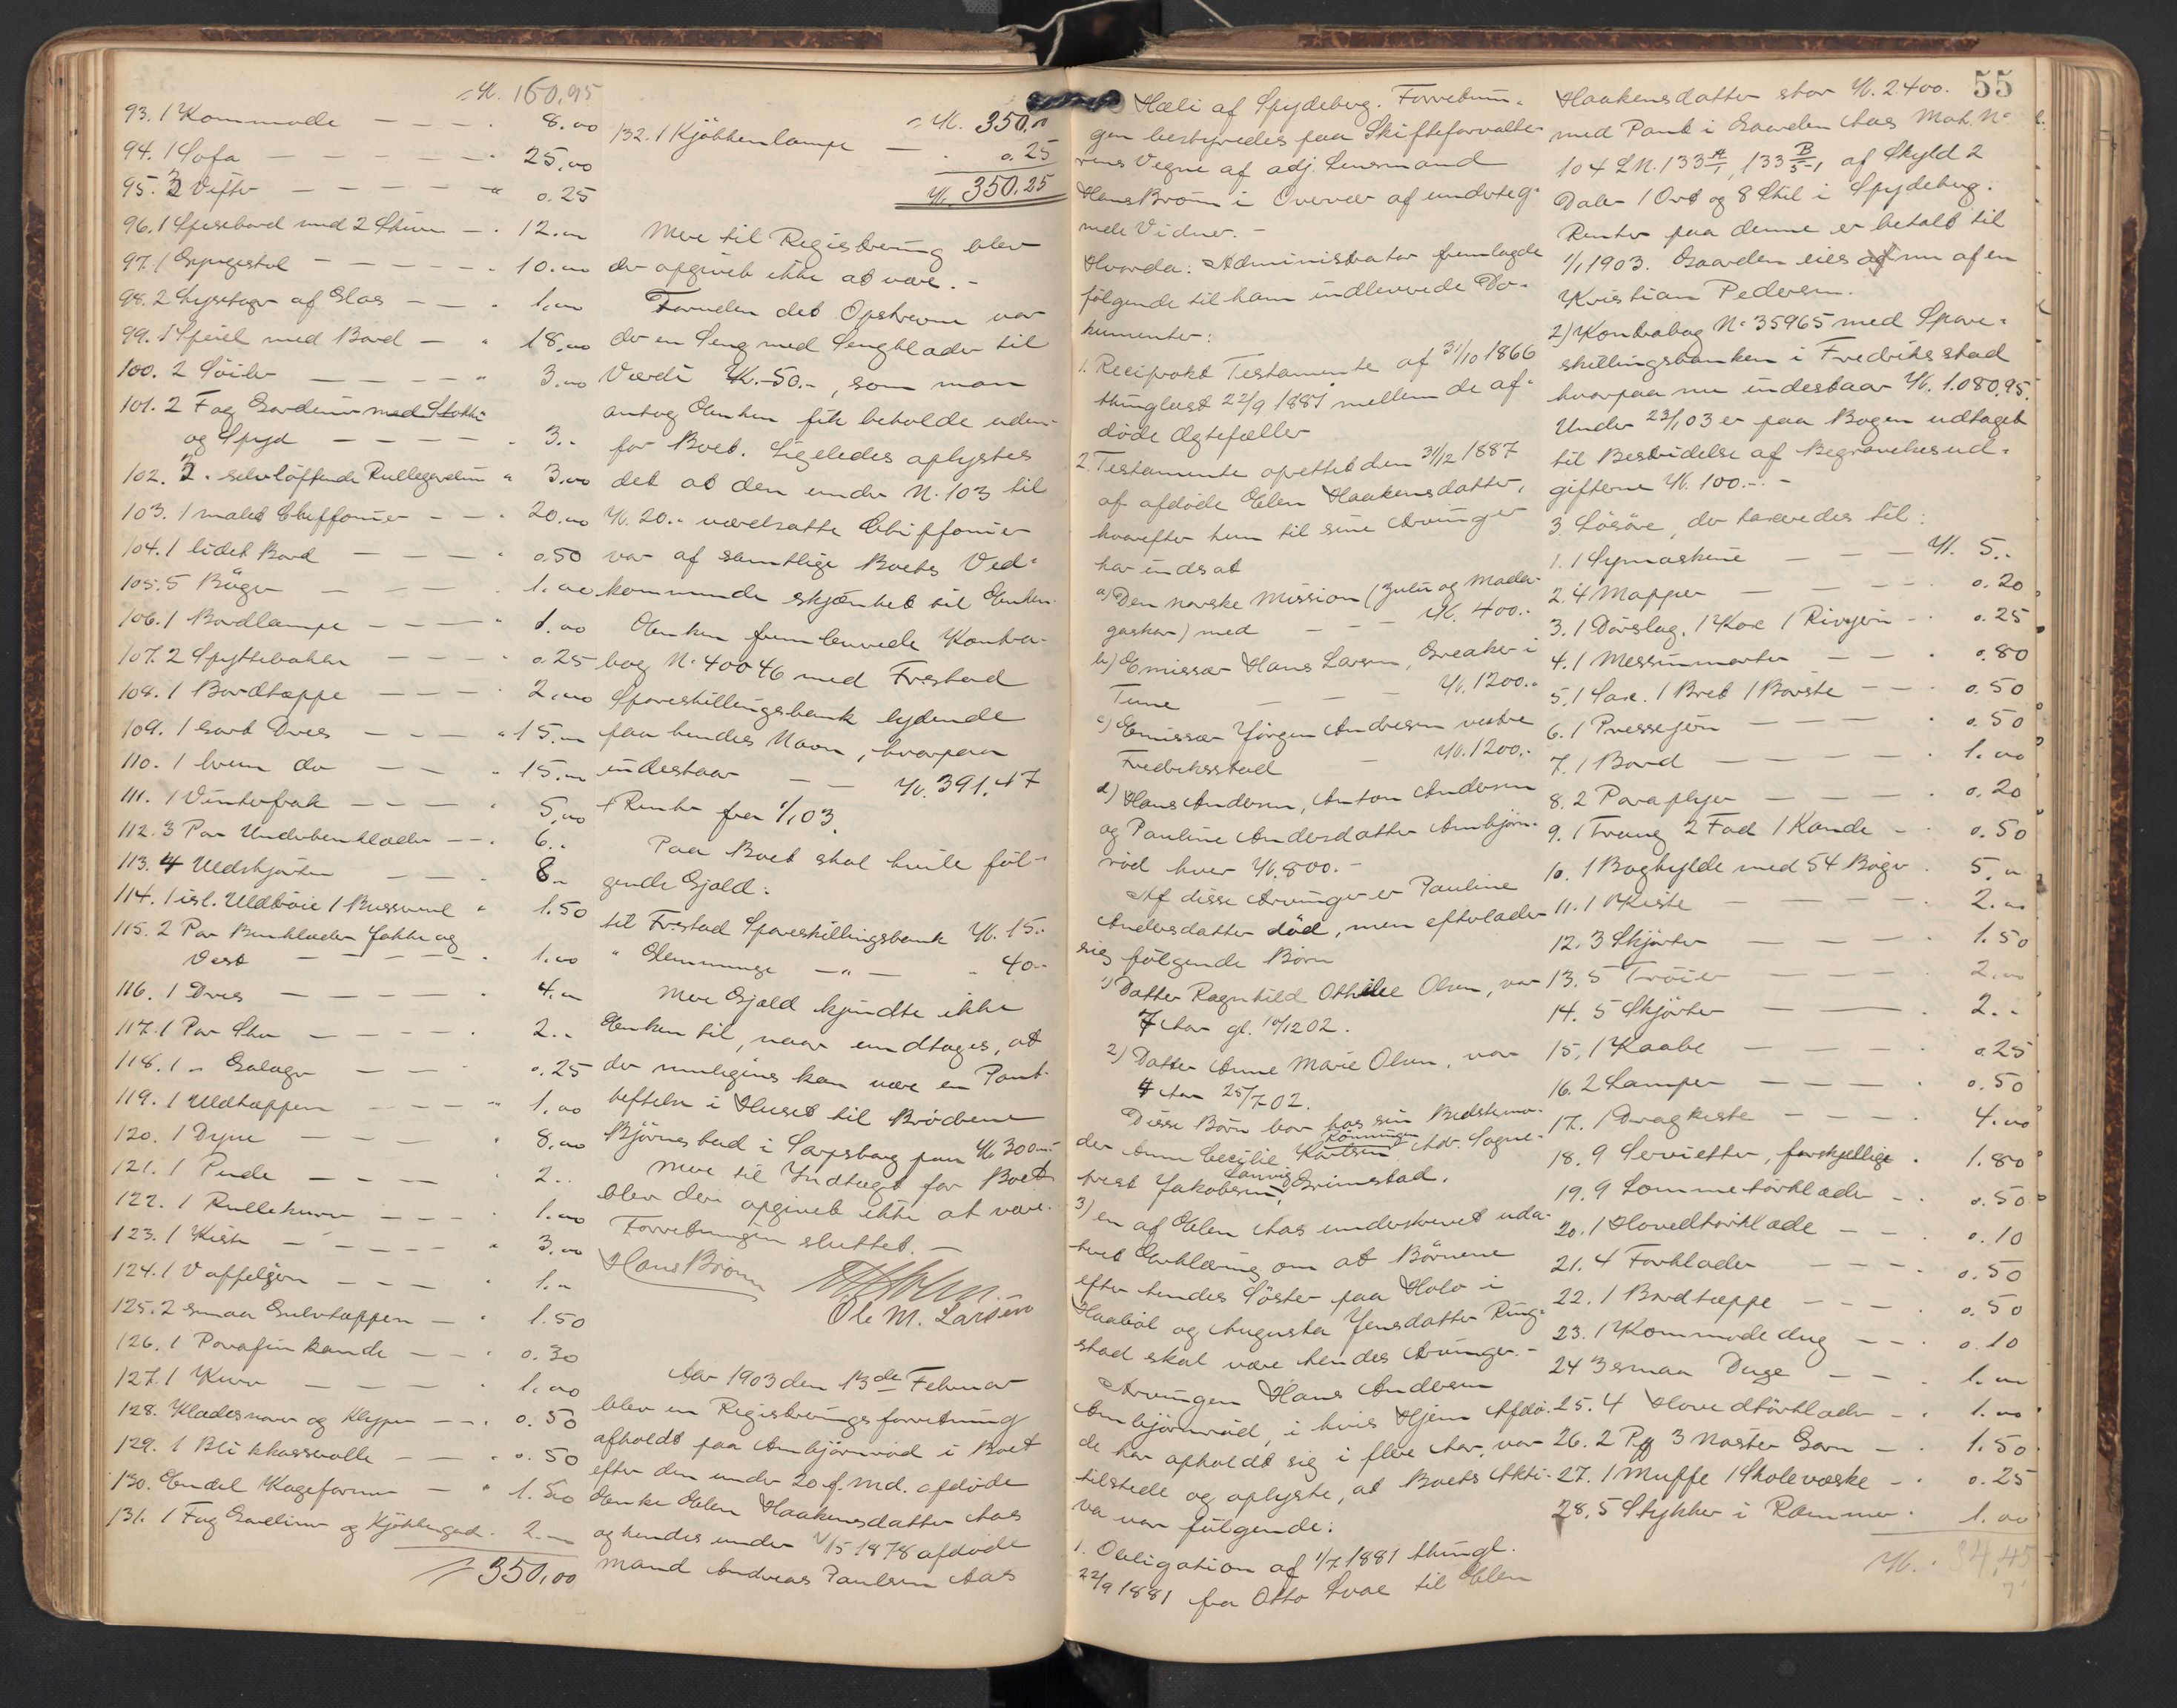 Kr. 160,95
93. 1 Kommode — — — 8.00
94. 1 Sofa — — — — 25,00
95. 3 Vifter — — — — " 0.25
96. 1 Spisebord med 2 Stuer — 12.00
97. 1 Gyngestol — — — — 10.00
98. 2 Lysetager af Glas — — 1,00
99. 1 Speil med Bord — " 18,00
100. 2 Söiler — — — — " 3.00
101. 2 Fag Gardiner med Stokke
og Spyd — — — — 3..
102. 3 . selvløftende Rullegardin " 3,00
103. 1 malet Chiffonier — — 20.00
104. 1 lidet Bord — — — " 0.50
105. 5 Bøger — — — . 1.00
106. 1 Bordlampe — — — " 1.00
107. 2 Spyttebakker — — — 0.25
108. 1 Bordtæppe — — — . 2,00
109. 1 sort Dres — — — " 15.00
110. 1 brun do — — — " 15.00
111. 1 Vinterfrak — — — " 5,00
112. 3 Par Underbenklæder — — . 6..
113. 4 Uldskjorter — — . 8..
114. 1 isl. Uldtröie 1 Busserul " 1.50
115. 2 Par Benklæder Jakke og
Vest — — — — . 1.00
116. 1 Dres — — — — . 4.00
117. 1 Par Sko — — — — . 2..
118. 1 " Galoger — — — 0.25
119. 1 Uldtæppen — — — " 1.00
120. 1 Dyne — — — — " 8,00
121. 1 Pude — — — — . 2..
122. 1 Rullekurv — — — . 1.00
123. 1 Kiste — — — — " 3.00
124. 1 Vaffeljern — — — . 1..
125. 2 smaa Gulvtæppen — . 1.50
126. 1 Parafin kande — — . 0.30
127. 1 Kurv — — — — . 1.00
128. Klædesnorer og Klyper — — . 0.50
129. 1 Blikkasserolle — — . 0.50
130. Endel Kageformer — " 1.50
131. 1 Fag Gardiner og Kjökkengard. 2.—
350,00
Kr. 350,00
132. 1 Kjökkenlampe — . 0.25
Kr. 350.25
Mere til Registrering blev
der opgivet ikke at være. -
Foruden det Opskrevne var
der en Seng med Sengklæder til
Værdi Kr. 50.-, som man
antog Enken fik beholde uden-
for Boet. Ligeledes oplystes
det at den under N. 103 til
Kr. 20.- værdsatte Chiffonier
var af samtlige Boets Ved-
kommende skjænket til Enken.
Enken fremleverede Kontra-
bog N. 40046 med Fr.stad
Spareskillingsbank lydende
paa hendes Navn, hvorpaa
indestaar — Kr. 391.47
+ Renter fra 1/1 03.
Paa Boet skal hvile föl-
gende Gjæld:
til Fr.stad Spareskillingsbank Kr. 15..
" Glemminge — " — . 40--
Mere Gjæld kjendte ikke
Enken til, naar undtages, at
der muligens kan være en Pant-
heftelse i Huset til Brødrene
Björnestad i Sarpsborg paa Kr 300.-
Mere til Indtægt for Boet
blev der opgivet ikke at være.
Forretningen sluttet. -
Hans Brönn
Ole M. Larsen
Aar 1903 den 13de Februar
blev en Registreringsforretning
afholdt paa Ambjörnröd i Boet
efter den under 20 f. Md. afdöde
Enke Elen Haakensdatter Aas
og hendes under 2/5 1878 afdöde
Mand Andreas Paulsen Aas
55
Hæli af Spydeberg. Forretnin-
gen bestyredes paa Skifteforvalte-
rens Vegne af adj. Lensmand
Hans Brönn i Overvær af underteg-
nede Vidner. -
Hvorda: Administrator fremlagde
følgende til ham indleverede Do-
kumenter:
1. Reciprokt Testamente af 31/10 1866
thinglæst 22/9 1881 mellem de af-
döde Ægtefæller
2. Testamente oprettet den 31/12 1887
af afdöde Elen Haakensdatter,
hvorefter hun til sine Arvinger
har indsat
a) Den norske Mission (Zulu og Mada-
gaskar) med — — — Kr. 400..
b) Emissær Hans Larsen, Greaker i
Tune — — — Kr. 1200..
c) Emissær Jörgen Andresen vestre
Fredriksstad — Kr. 1200..
d) Hans Andersen, Anton Andersen
og Pauline Andersdatter Ambjörn-
röd hver Kr. 800.-
Af disse Arvinger er Pauline
Andersdatter död, men efterlader
sig følgende Børn
1) Datter Ragnhild Othilie Olsen, var
7 Aar gl. 10/12 02.
2) Datter Anne Marie Olsen, var
4 Aar 25/7 02.
Disse Börn bor hos sin Bedstemo-
der Anne Cecilie Karlsen Rönningen Adr. Sogne-
prest Jakobsen, Lanvig Grimestad.
3) en af Elen Aas underskrevet uda-
teret Erklæring om at Börnene
efter hendes Söster paa Holo i
Haaböl og Augusta Jensdatter Ring-
stad skal være hendes Arvinger. -
Arvingen Hans Andersen
Ambjörnröd, i hvis Hjem Afdö-
de har opholdt sig i flere Aar, var
tilstede og oplyste, at Boets Akti-
va var følgende:
1. Obligation af 1/7 1881 thingl.
22/9 1881 fra Otto Svae til Elen
Haakensdatter stor Kr. 2400.
med Pant i Gaarden Aas Mat. No
104 LN. 133 A/1, 133 B/5-1 af Skyld 2
Daler 1 Ort og 8 Skil i Spydeberg.
Renter paa denne er betalt til
1/1 1903. Gaarden eies nu af en
Kristian Pedersen.
2) Kontrabog No 35965 med Spare-
skillingsbanken i Fredriksstad
hvorpaa nu indestaar Kr. 1.080,95.
Under 23/1 03 er paa Bogen udtaget
til Bestridelse af Begravelsesud-
gifterne Kr. 100.-. -
3. Lösöre, der taxeredes til:
1. 1 Symaskine — — — Kr. 5..
2. 4 Mapper — — — . 0.20
3. 1 Dörslag, 1 Kar 1 Rivjern — . 0.25
4. 1 Messinmorter — — . 0.80
5. 1 Sax. 1 Bret 1 Börste — — . 0.50
6. 1 Pressejern — — — . 0.50
7. 1 Bord — — — — . 1.00
8. 2 Paraplyer — — — . 0.20
9. 1 Traug 2 Fad 1 Kande — . 0.50
10. 1 Boghylde med 54 Böger . 5.00
11. 1 Kiste — — — — . 2.00
12. 3 Skjorter — — — . 1.50
13. 5 Tröier — — — . 2.00
14. 5 Skjörter — — — . 2..
15. 1 Kaabe — — — . 0.25
16. 2 Lamper — — — . 0.50
17. 1 Dragkiste — — — . 4.00
18. 9 Servietter, forskjellige . 1.80
19. 9 Lommetörklæder — . 0.50
20. 1 Hovedtörklæde — — . 0.10
21. 4 Forklæder — — — . 0.50
22. 1 Bordtæppe — — — . 0.50
23. 1 Kommodedug — — . 0.10
24 3 smaa Duge — — . 1.00
25. 4 Hovedtörklæder — . 1.00
26. 2 Pg 3 Nöster Garn — . 1.50
27. 1 Muffe 1 Skolevæske — . 0.25
28. 5 Stykker i Rammer . 1.00
Kr. 34,45